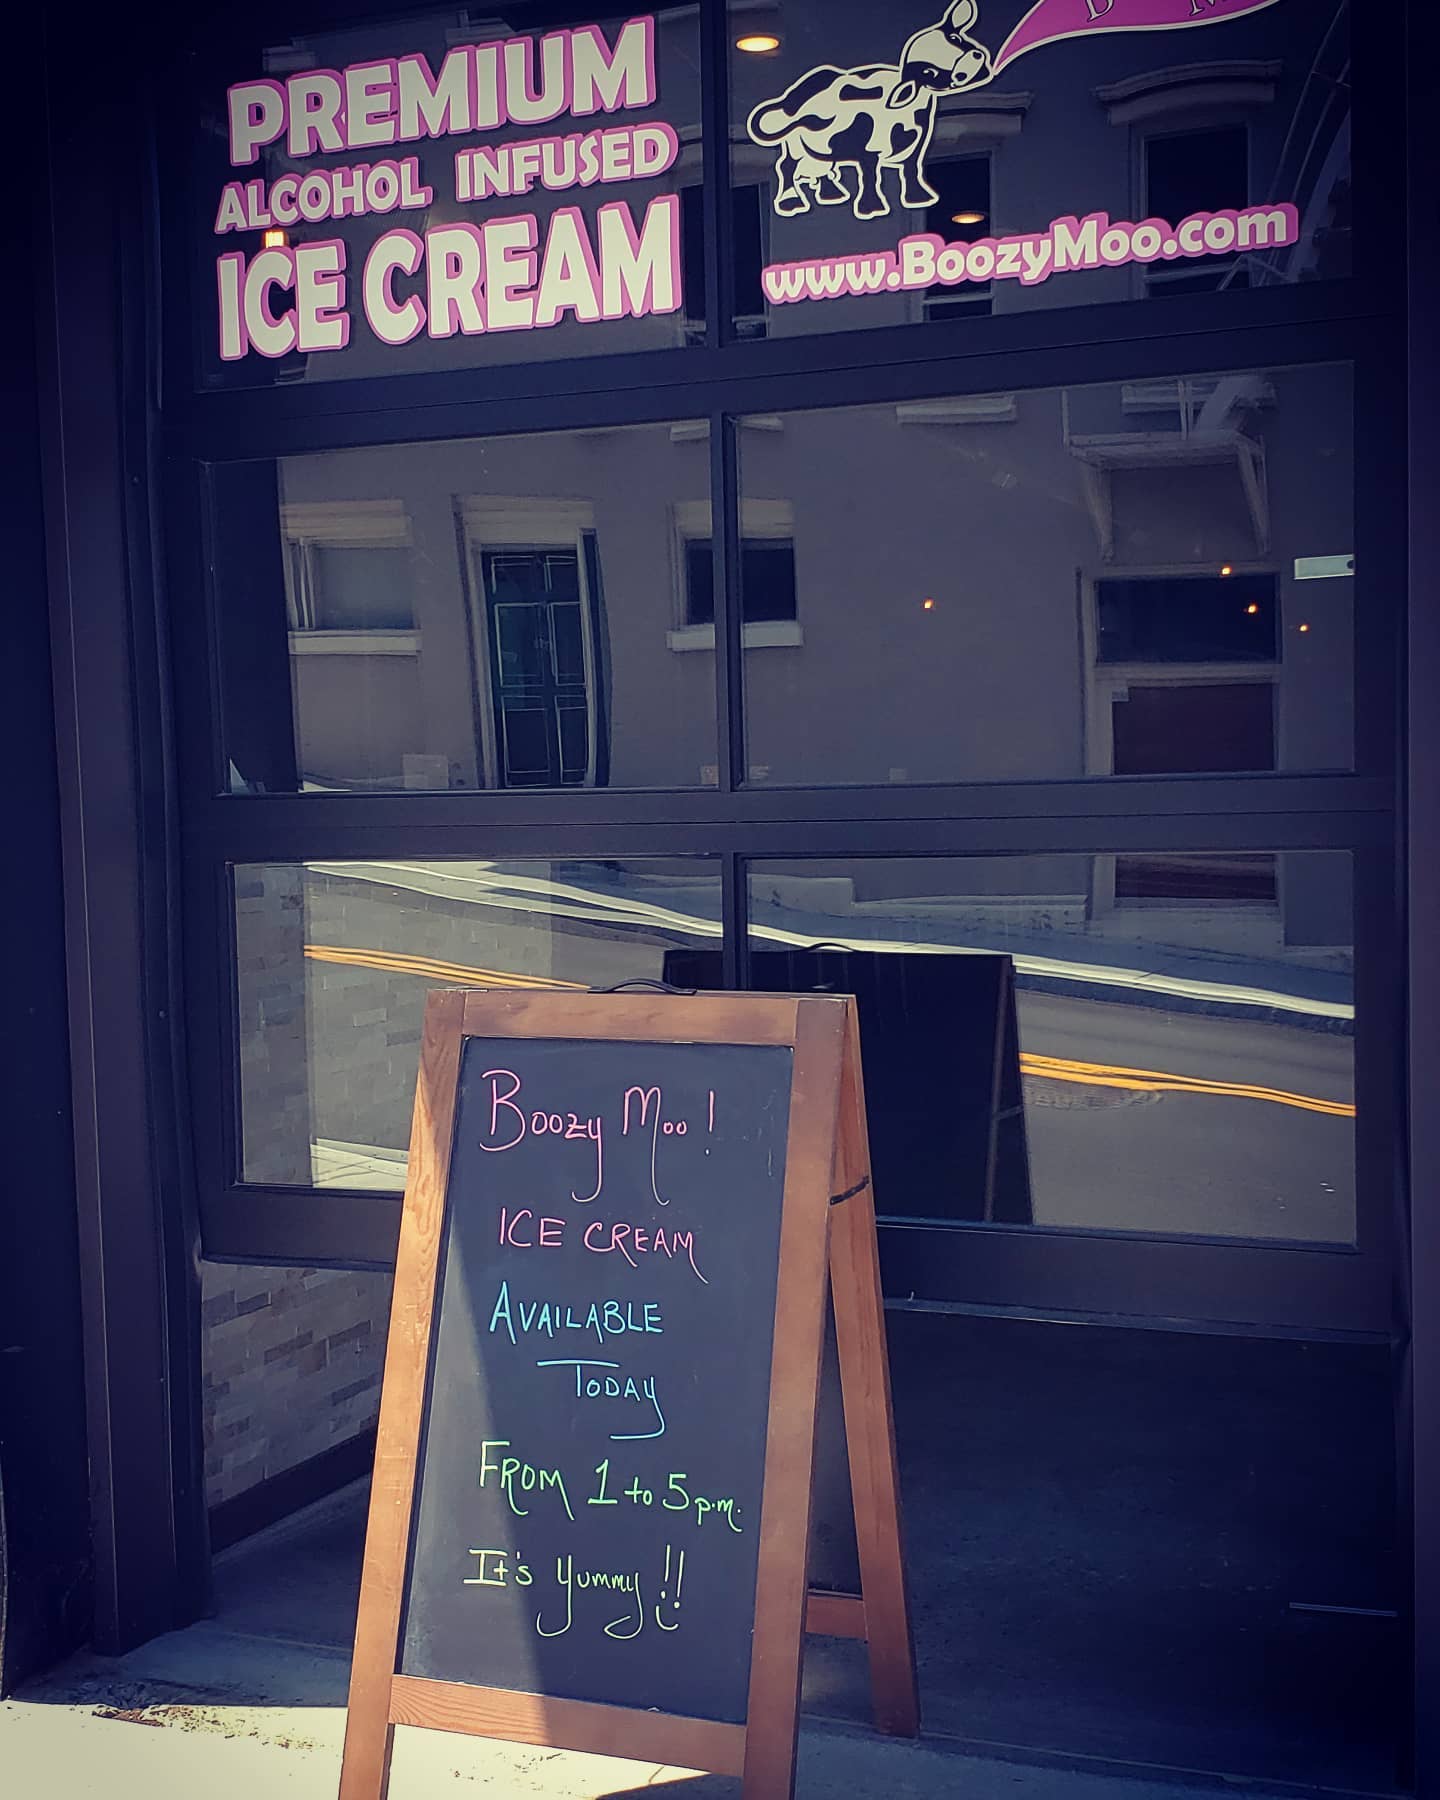 PREMIUM
ALCOHOL INFUSED
ICE CREAM
www.BoozyMoo.com
Boozy Moo!
ICE CREAM
AVAILABLE
TODAY
FROM 1 to 5 p.m.
It's Yummy!!